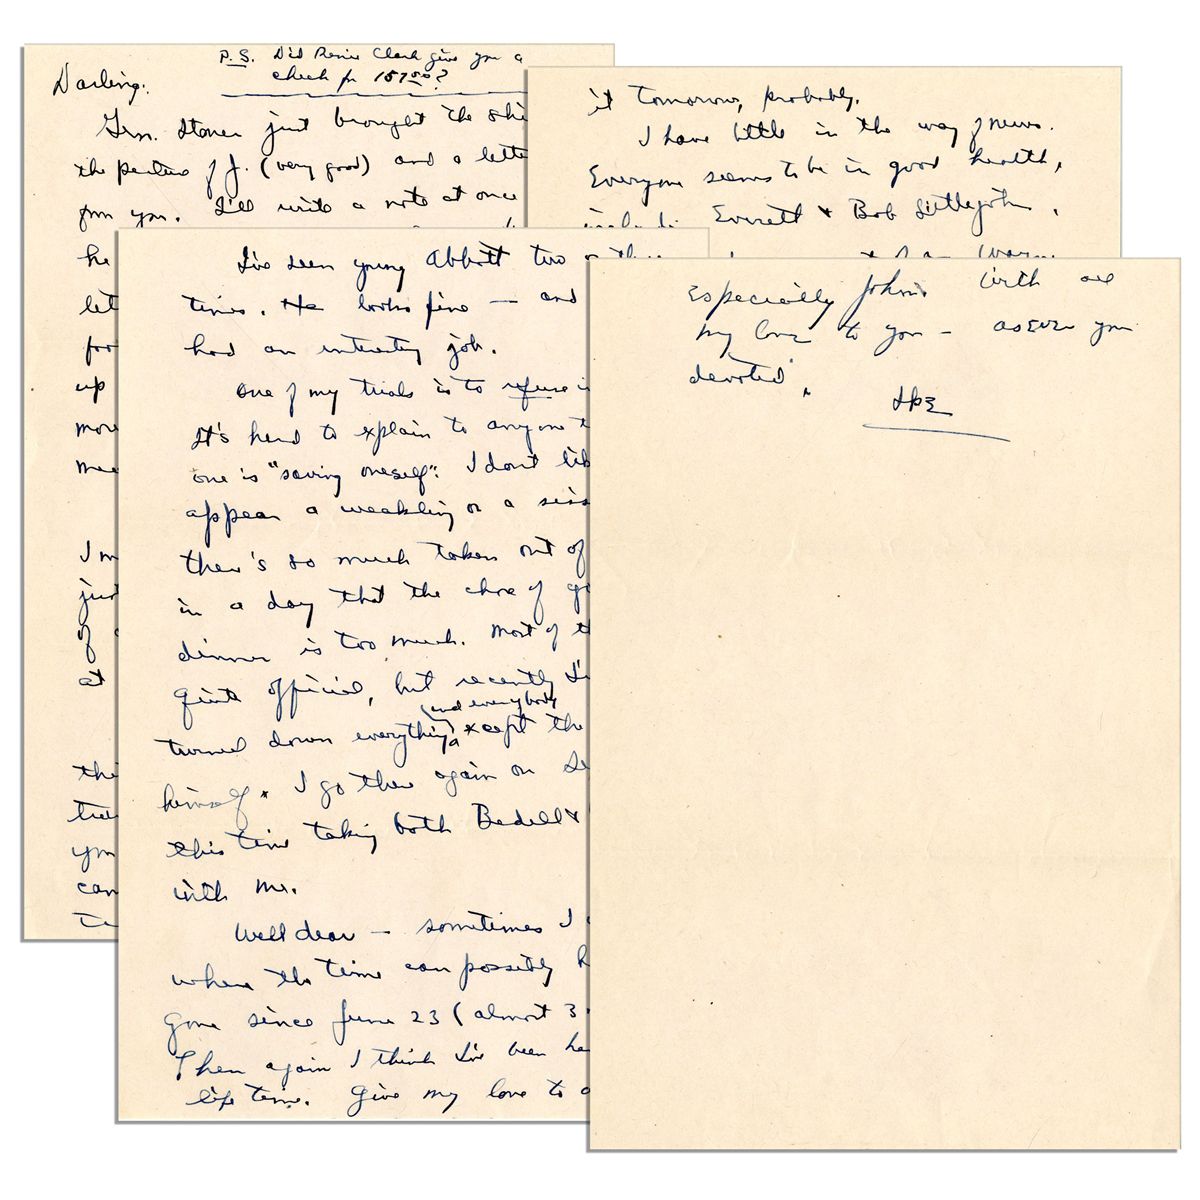 P.S. Did Renie Clark give you a
check for 157.50?
Darling:
Gen. Stoner just brought the shi
the picture of J. (very good) and a lette
from you. I'll write a note at once
he
let
for
up
more
mee
I m
just
of
at
the
tre
you
can
Te
it tomorrow, probably.
I have little in the way of news.
Everyone seems to be in good health,
Everett & Bob Littlejohn.
warm
I've seen young Abbott two
times. He looks fine — and
had an interesting job.
One of my trials is to refuse i
It's hard to explain to anyone t
one is "saving oneself". I don't lik
appear a weakling or a siss
there's so much taken out of
in a day that the chore of go
dinner is too much. Most of th
quite official, but recently I'
(and everybody)
turned down everything except the
himself. I go there again on Se
this time taking both Bedell &
with me.
Well dear — sometimes I
where the time can possibly h
gone since June 23 (almost 3
Then again I think I've been he
life time. Give my love to a
Especially John's. With all
my love to you — as ever your
devoted,
Ike